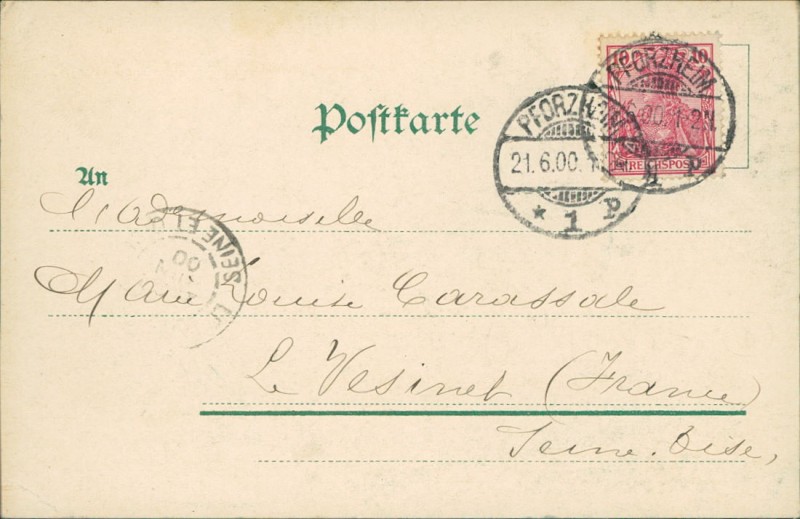 10 10
PFORZHEIM
Postkarte
PFORZHEIM
21.6.00.
* 1 P
REICHSPOST
An
Mademoiselle
SEINE ET
00
Marie Louise Carassale
Le Vesinet (France)
Seine. Oise,